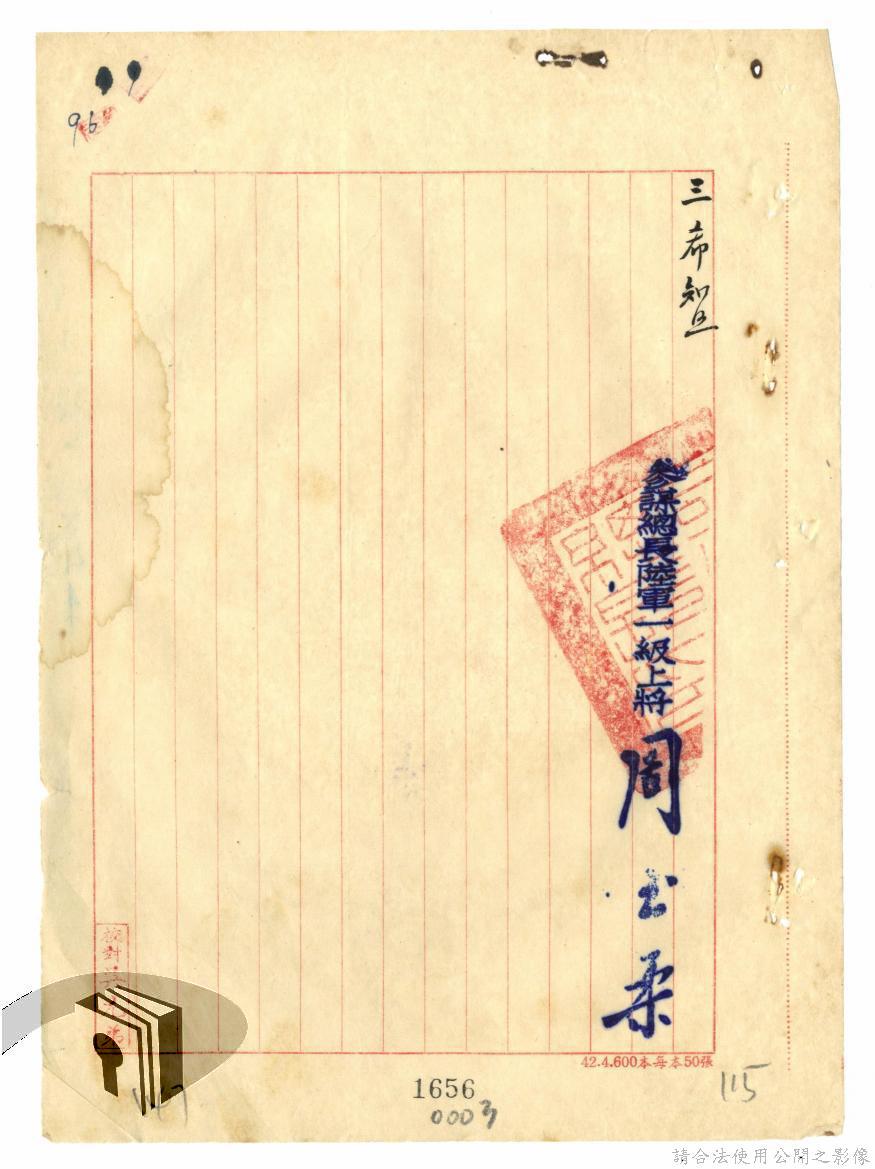 96
三希知照
參謀總長陸軍一級上將 周至柔
校對
42.4.600本每本50張
1656
0003
115
147
請合法使用公開之影像